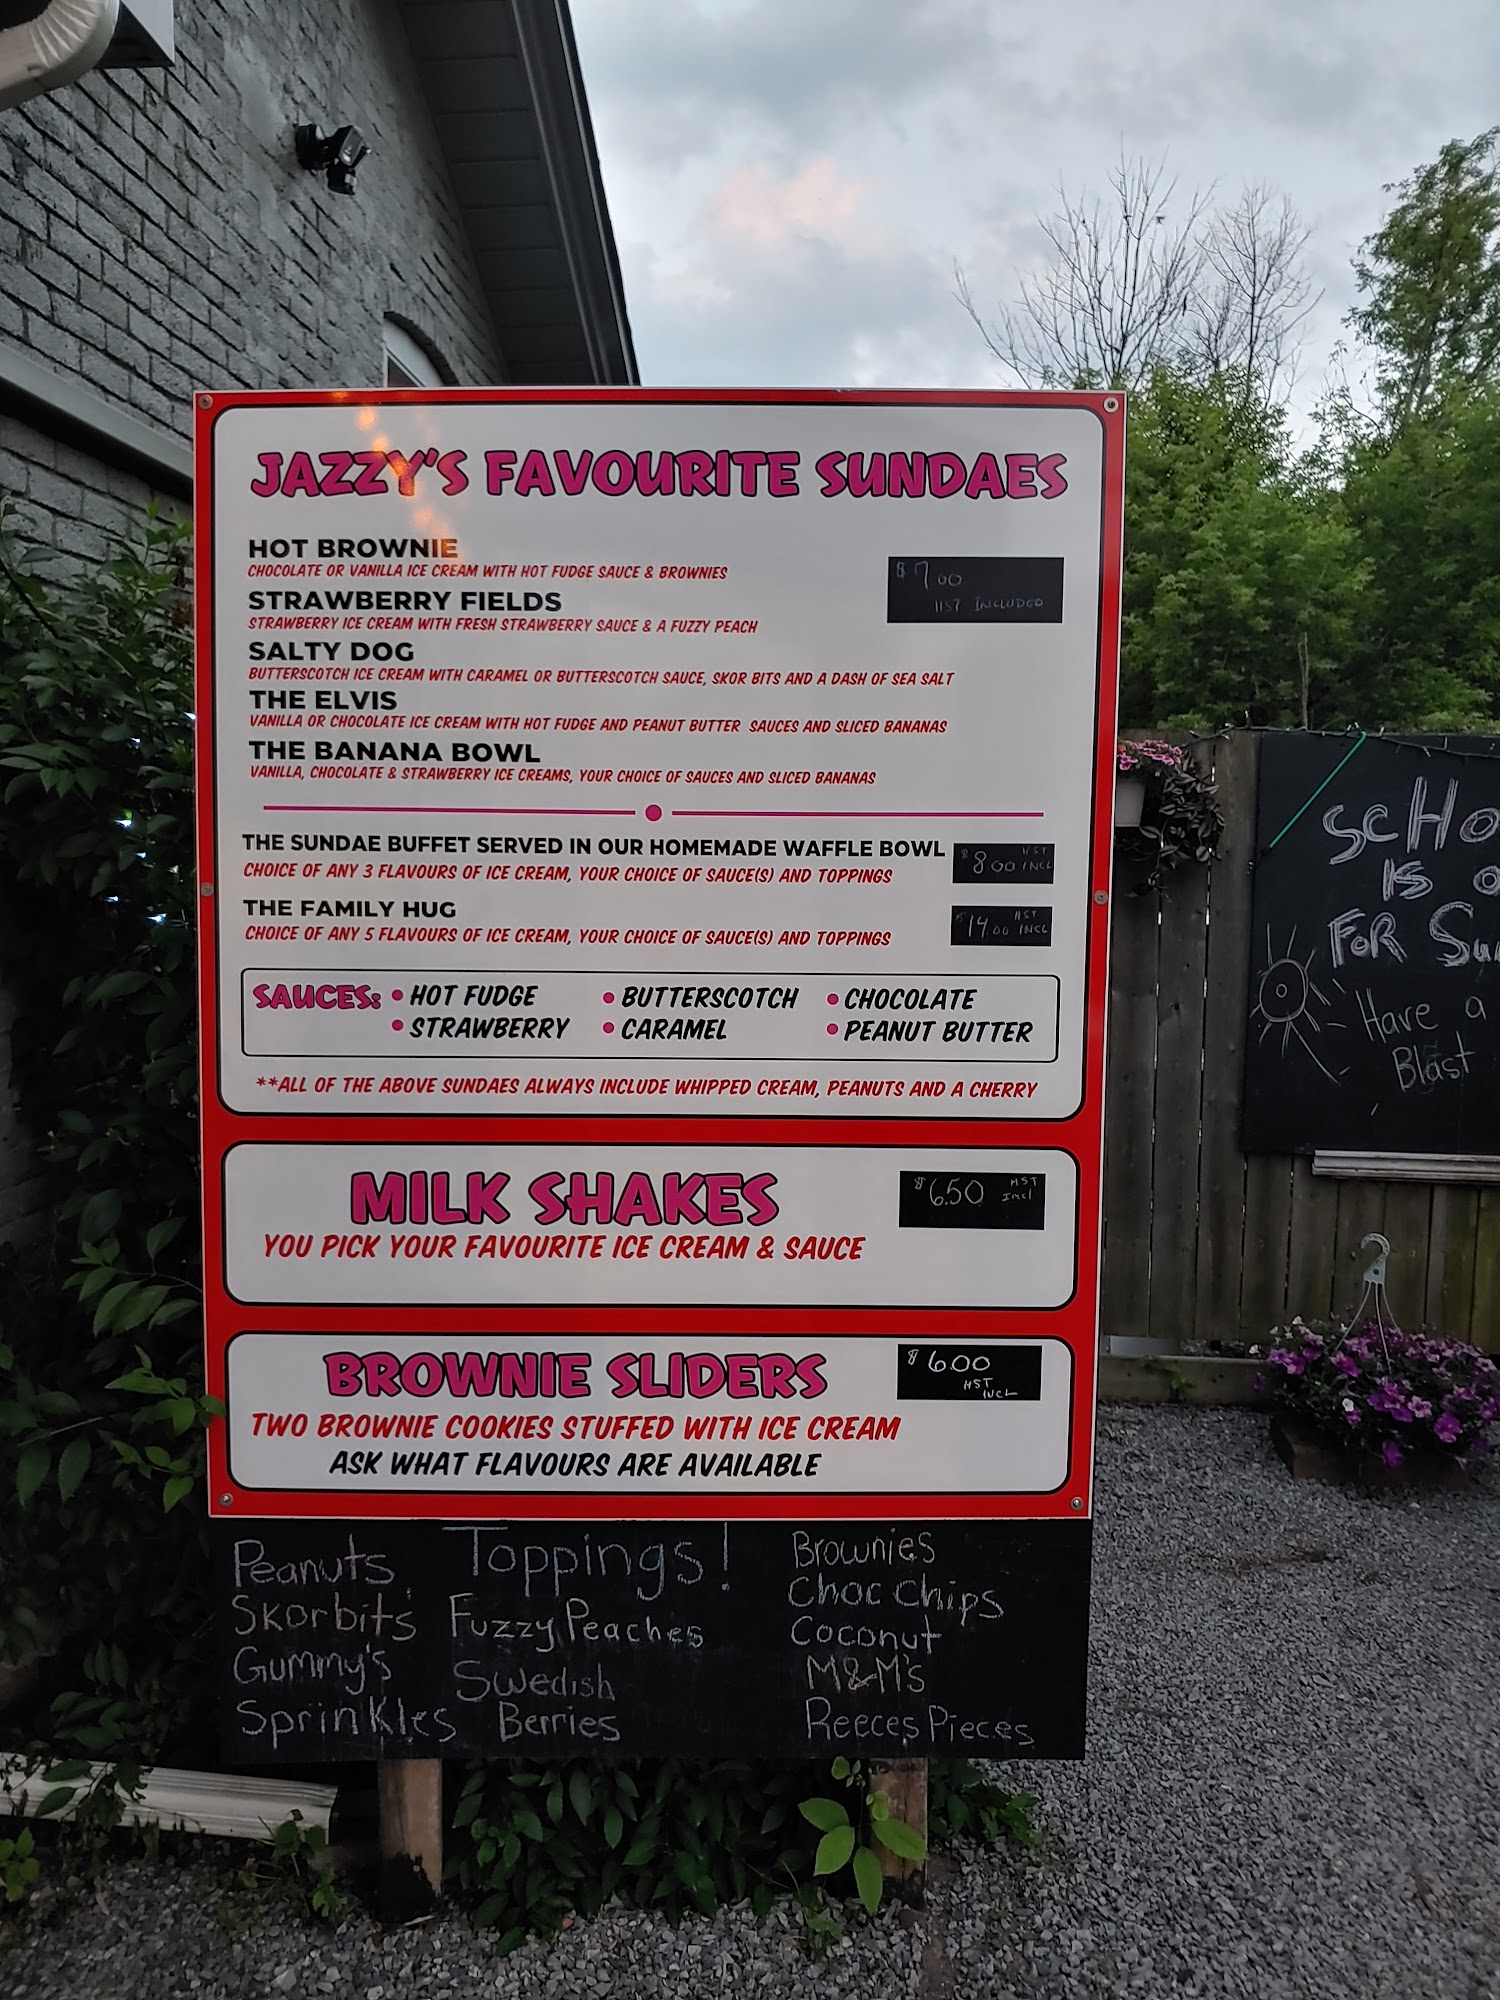 JAZZY'S FAVOURITE SUNDAES
HOT BROWNIE
CHOCOLATE OR VANILLA ICE CREAM WITH HOT FUDGE SAUCE & BROWNIES
$7.00
HST INCLUDED
STRAWBERRY FIELDS
STRAWBERRY ICE CREAM WITH FRESH STRAWBERRY SAUCE & A FUZZY PEACH
SALTY DOG
BUTTERSCOTCH ICE CREAM WITH CARAMEL OR BUTTERSCOTCH SAUCE, SKOR BITS AND A DASH OF SEA SALT
THE ELVIS
VANILLA OR CHOCOLATE ICE CREAM WITH HOT FUDGE AND PEANUT BUTTER SAUCES AND SLICED BANANAS
THE BANANA BOWL
VANILLA, CHOCOLATE & STRAWBERRY ICE CREAMS, YOUR CHOICE OF SAUCES AND SLICED BANANAS
THE SUNDAE BUFFET SERVED IN OUR HOMEMADE WAFFLE BOWL
$8.00 HST INCL
CHOICE OF ANY 3 FLAVOURS OF ICE CREAM, YOUR CHOICE OF SAUCE(S) AND TOPPINGS
THE FAMILY HUG
$14.00 HST INCL
CHOICE OF ANY 5 FLAVOURS OF ICE CREAM, YOUR CHOICE OF SAUCE(S) AND TOPPINGS
SAUCES: • HOT FUDGE • BUTTERSCOTCH • CHOCOLATE
• STRAWBERRY • CARAMEL • PEANUT BUTTER
**ALL OF THE ABOVE SUNDAES ALWAYS INCLUDE WHIPPED CREAM, PEANUTS AND A CHERRY
MILK SHAKES
$6.50 HST Incl
YOU PICK YOUR FAVOURITE ICE CREAM & SAUCE
BROWNIE SLIDERS
$6.00
HST
INCL
TWO BROWNIE COOKIES STUFFED WITH ICE CREAM
ASK WHAT FLAVOURS ARE AVAILABLE
Toppings!
Peanuts
Skorbits
Gummy's
Sprinkles
Fuzzy Peaches
Swedish
Berries
Brownies
Choc Chips
Coconut
M&M's
Reeces Pieces
ScHo
IS o
FoR Su
Have a
Blast